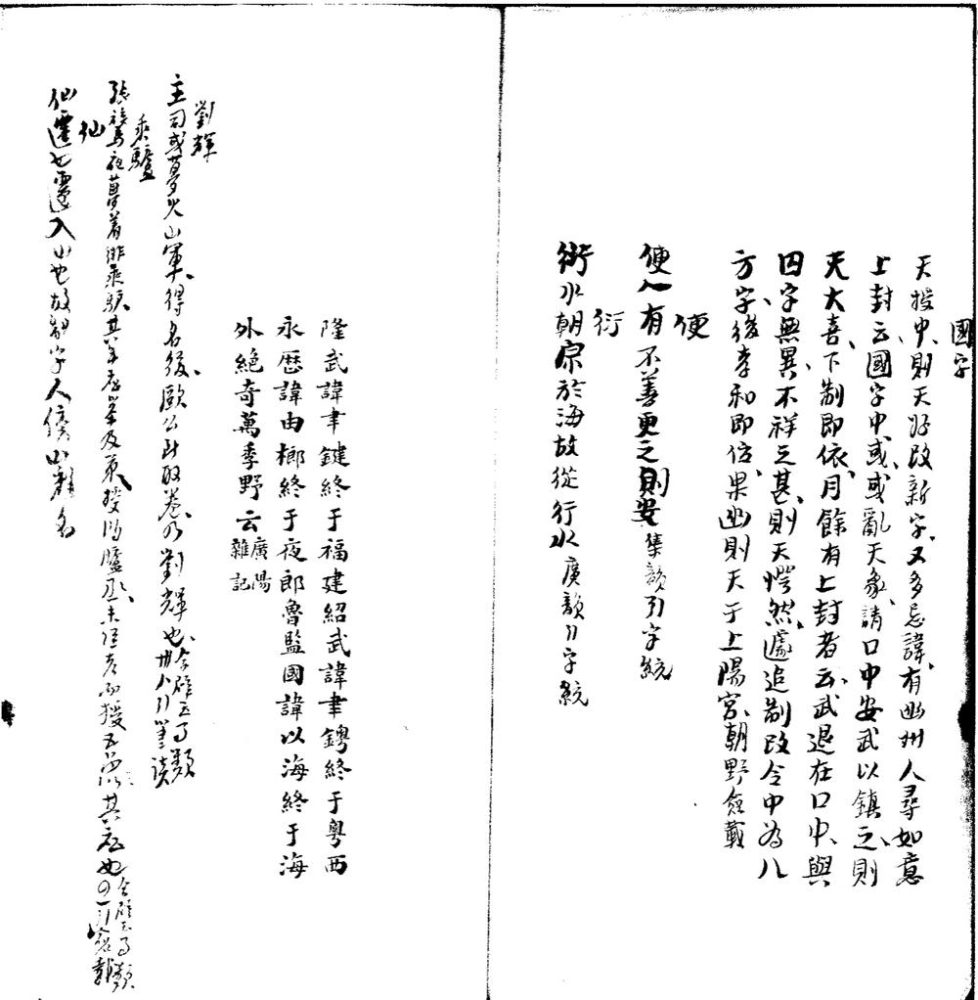 國字
天授中、則天好改新字、又多忌諱、有幽州人尋如意
上封云國字中或、或亂天象、請口中安武以鎮之、則
天大喜、下制即依、月餘有上封者云、武退在口中、與
囚字無異、不祥之甚、則天愕然、遽追制改令中為八
方字、後孝和即位、果幽則天于上陽宮、朝野僉載
便
便人有不善更之則安 集韻引字統
衍
衍水朝宗於海故從行水 廣韻引字統
隆武諱聿鍵終于福建紹武諱聿鐭終于粵西
永歷諱由榔終于夜郎魯監國諱以海終于海
外絕奇萬季野云 廣陽雜記
劉輝
主司或夢火山軍、得名後、歐公此取卷、乃劉輝也、合璧五 類
乘驢
張鷟夜夢著緋乘驢其年 及 授
仙
仙遷也遷入山也故制字人傍山